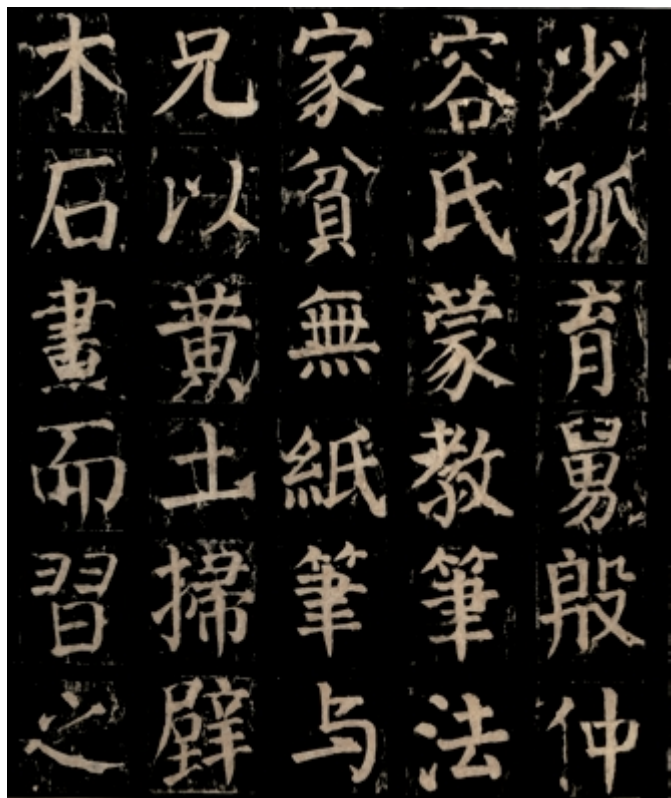 少孤育舅殷仲
容氏蒙教筆法
家貧無紙筆与
兄以黄土掃壁
木石畫而習之